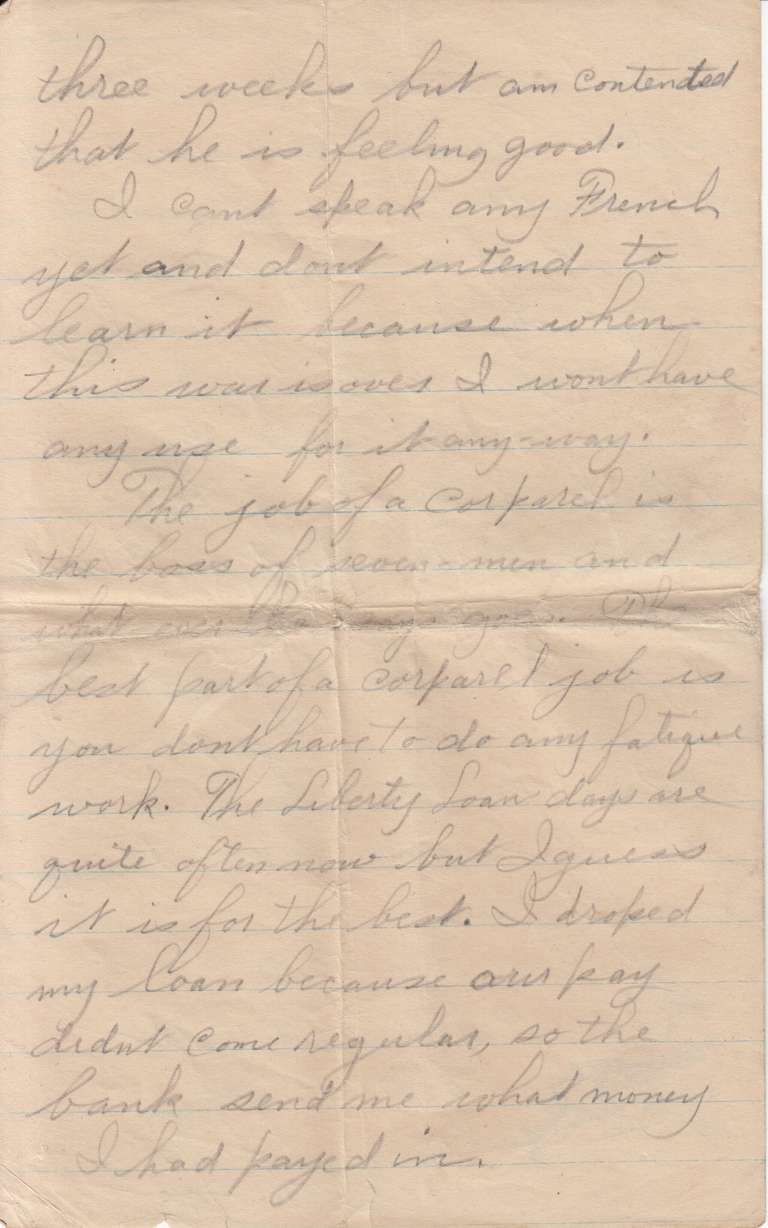 three weeks but am contented
that he is feeling good.
I cant speak any French
yet and dont intend to
learn it because when
this war is over I wont have
any use for it any-way.
The job of a corparel is
the boss of seven-men and
what ever he says goes. The
best part of a corparel job is
you dont have to do any fatique
work. The Liberty Loan days are
quite often now but I guess
it is for the best. I droped
my loan because our pay
didnt come regular, so the
bank send me what money
I had payed in.